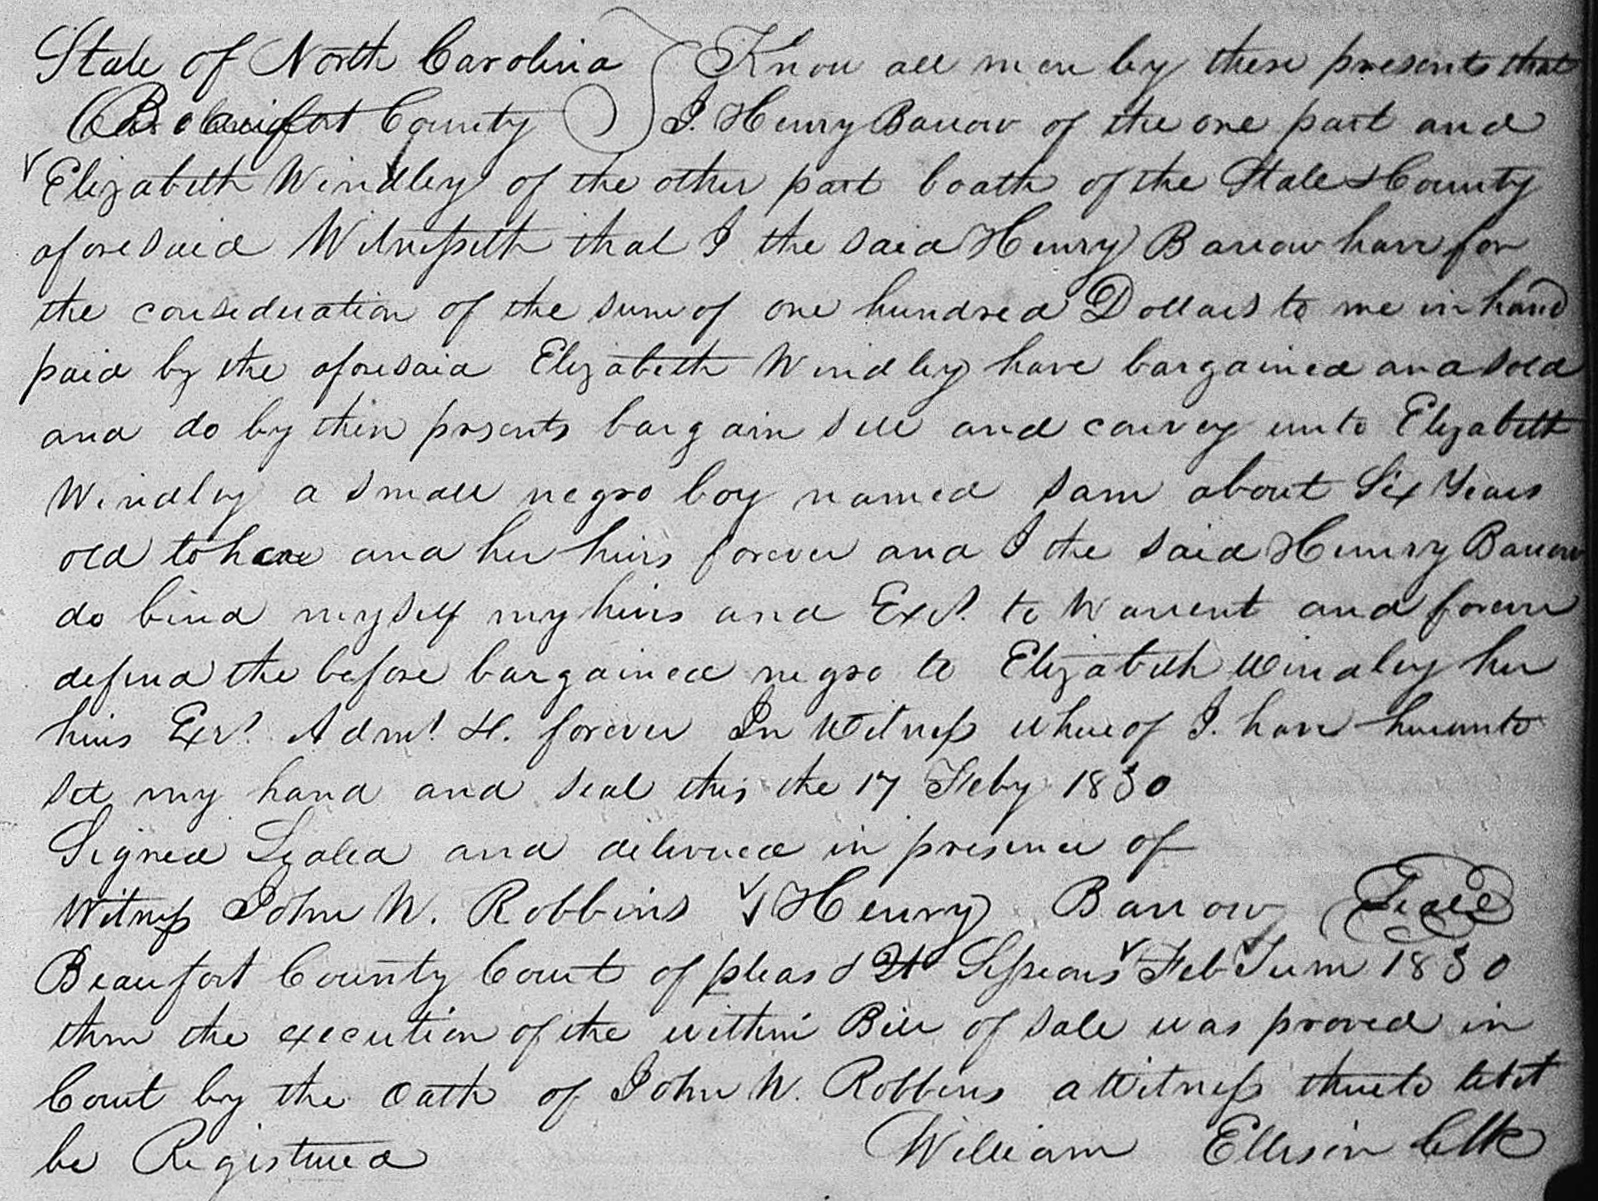 State of North Carolina Know all men by these presents that
Beaufort County I. Henry Barrow of the one part and
Elizabeth Windley of the other part boath of the State & County
aforesaid Witnesseth that I the said Henry Barrow have for
the consideration of the sum of one hundred Dollars to me in hand
paid by the aforesaid Elizabeth Windley have bargained and sold
and do by these presents bargain sell and convey unto Elizabeth
Windley a small negro boy named Sam about Six Years
old to her and her heirs forever and I the said Henry Barrow
do bind myself my heirs and Exrs. to Warrent and forever
defend the before bargained negro to Elizabeth Windley her
heirs Exrs. Admrs. &. forever In Witness whereof I. have hereunto
set my hand and seal this the 17 Feby 1830
Signed Sealed and delivered in presence of
Witness John W. Robbins Henry Barrow Seal
Beaufort County Court of pleas & Sessions Feb Term 1830
then the execution of the within Bill of Sale was proved in
Court by the Oath of John W. Robbins a Witness thereto let it
be Registered William Ellison Clk